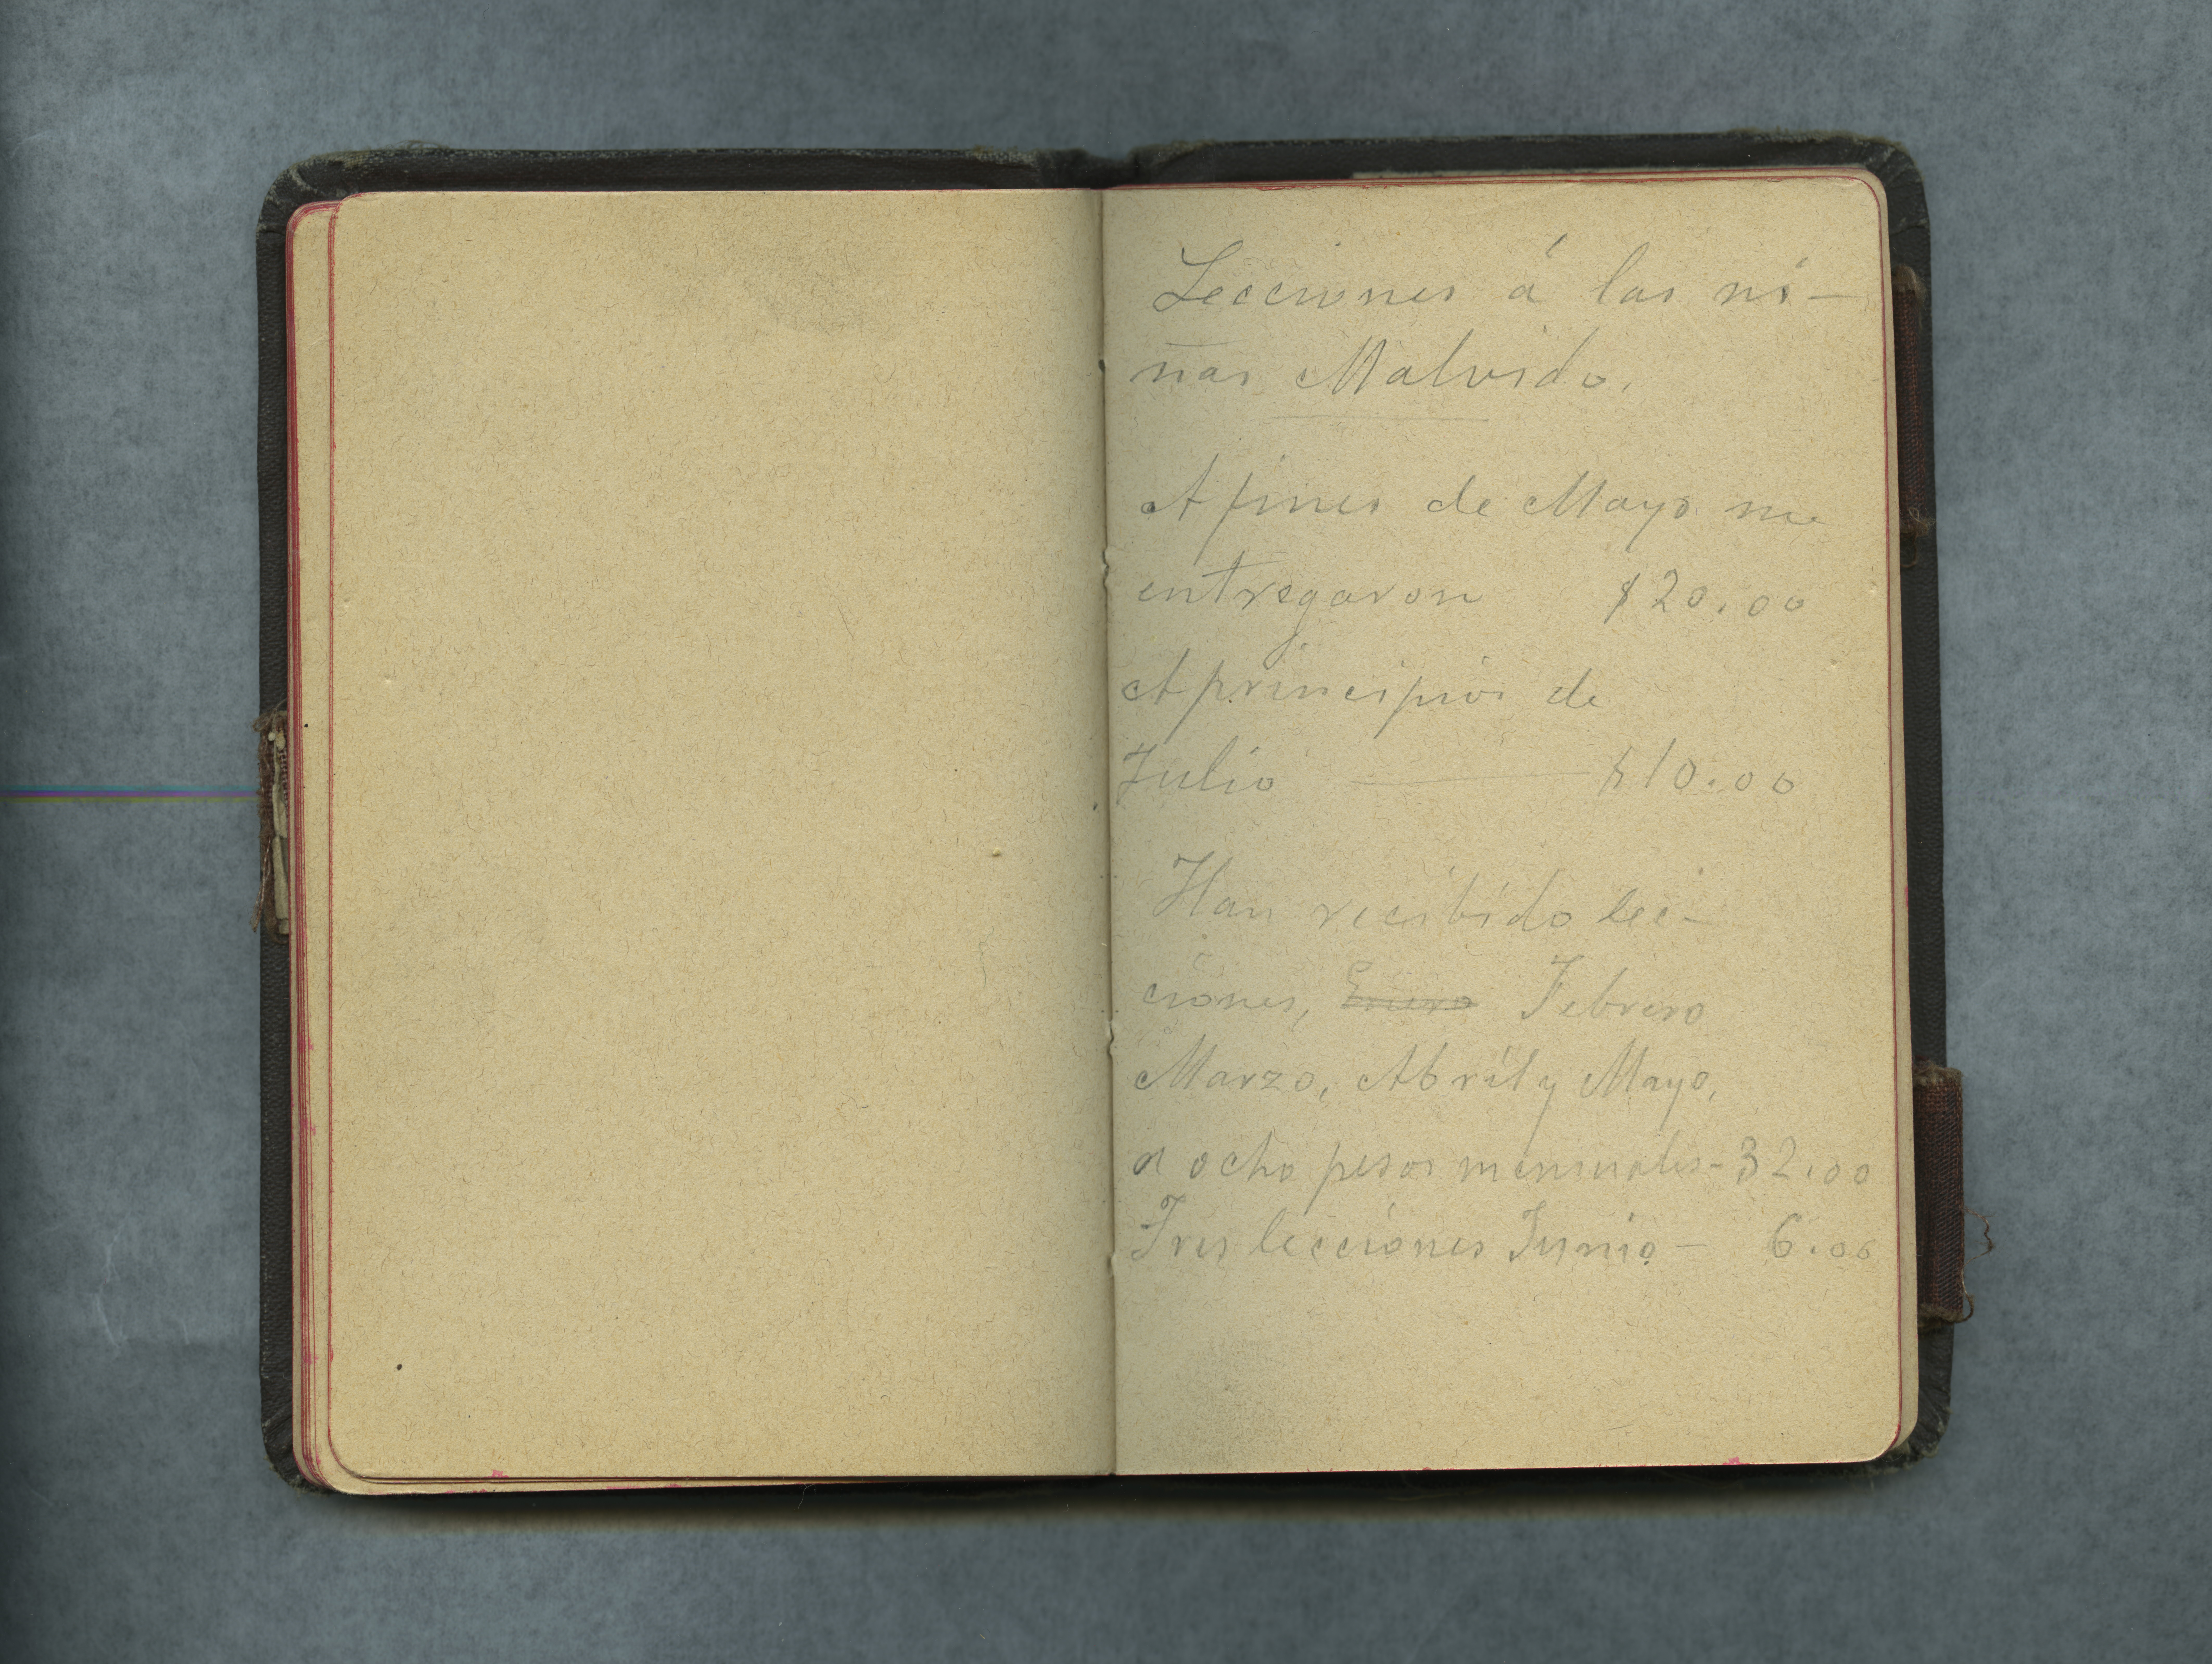 Lecciones á las ni-
ñas Malvido.
A fines de Mayo me
entregaron $20.00
A principios de
Julio — $10.00
Han recibido lec-
ciones, Enero Febrero
Marzo, Abril y Mayo,
a ocho pesos mensuales - 32.00
Tres lecciones Junio - 6.00